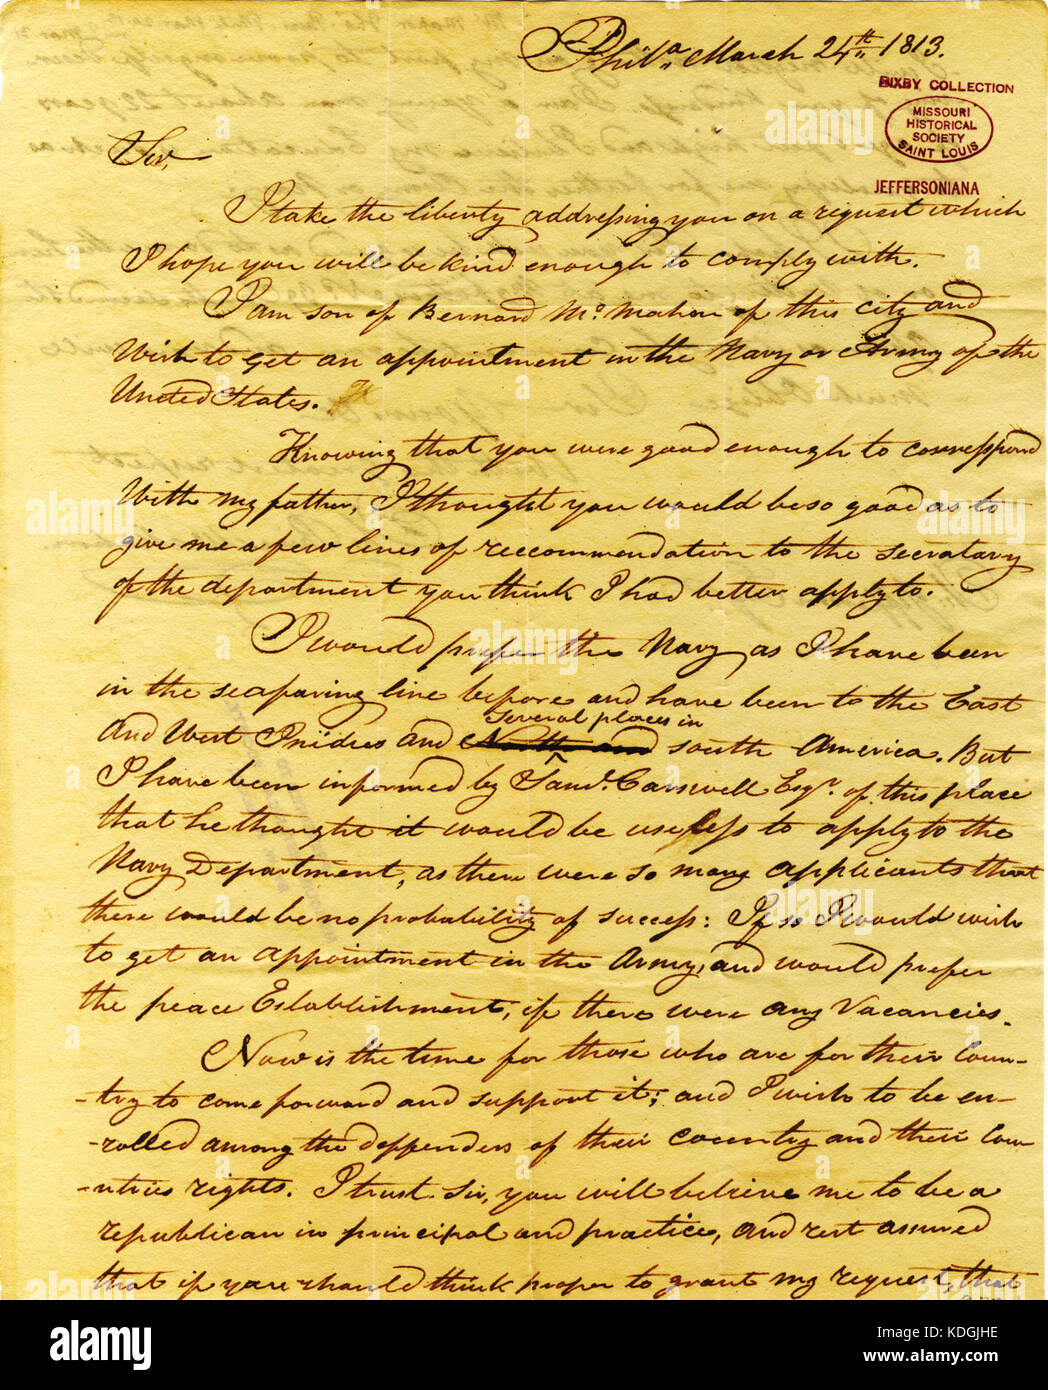 Phila. March 24th 1813.
BIXBY COLLECTION
MISSOURI
HISTORICAL
SOCIETY
SAINT LOUIS
JEFFERSONIANA
Sir,
I take the liberty addressing you on a request which
I hope you will be kind enough to comply with.
I am son of Bernard Mc. Mahon of this city and
Wish to get an appointment in the Navy or Army of the
United States.
Knowing that you were good enough to correspond
With my father, I thought you would be so good as to
give me a few lines of reccommendation to the secratary
of the department you think I had better apply to.
I would prefer the Navy as I have been
in the seafaring line before and have been to the East
several places in
And West Inidies and North and south America. But
I have been informed by Saml. Carswell Esqr. of this place
that he thought it would be useless to apply to the
Navy Department, as there were so many applicants that
there would be no probability of success: If so I would wish
to get an appointment in the Army, and would prefer
the peace Establishment, if there were any Vacancies.
Now is the time for those who are for their Coun-
-try to come forward and support it; and I wish to be en-
-rolled among the deffenders of their country and their Cou-
-ntries rights. I trust Sir, you will beleive me to be a
republican in principal and practice, and rest assured
that if you should think proper to grant my request, that
alamy
Image ID: KDGJHE
www.alamy.com